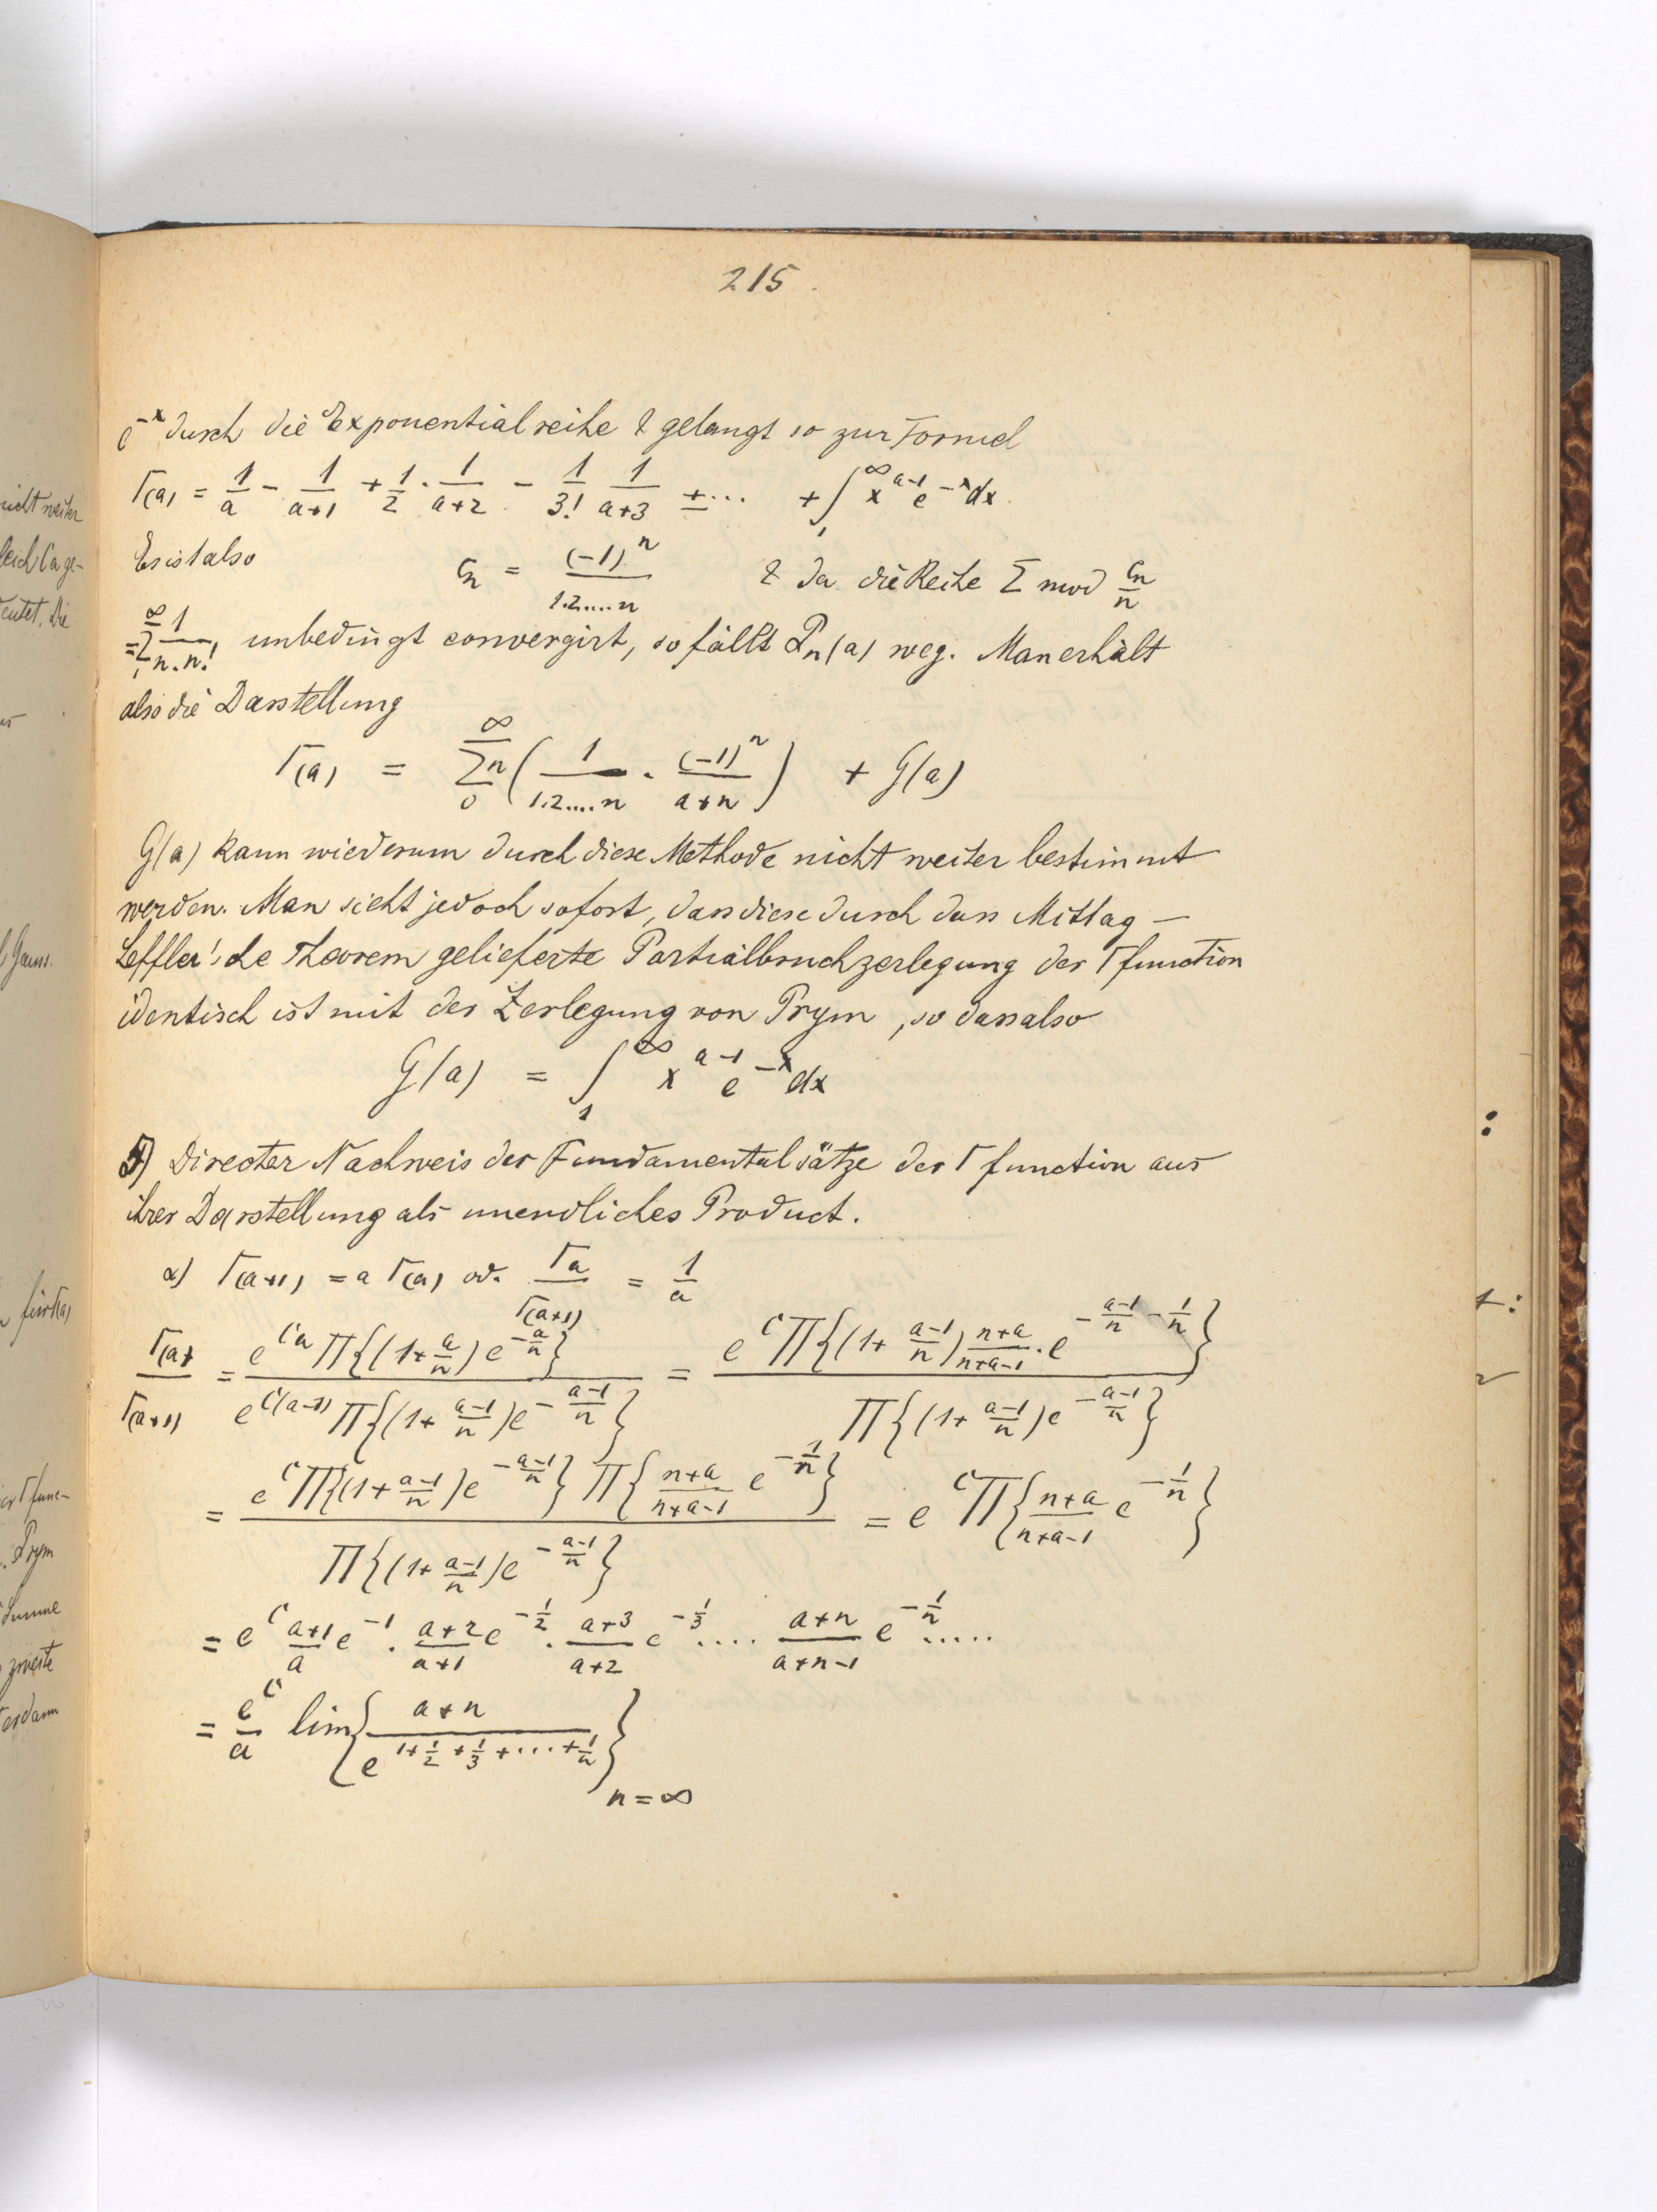 215.
e^{-x} durch die Exponentialreihe & gelangt so zur Formel
Γ(a) = 1/a - 1/(a+1) + 1/2 · 1/(a+2) - 1/3! 1/(a+3) ± ... + ∫_1^∞ x^{a-1} e^{-x} dx.
Es ist also c_n = (-1)^n / 1.2....n & da die Reihe Σ mod c_n/n
= Σ_1^∞ 1/n.n! unbedingt convergirt, so fällt P_n(a) weg. Man erhält
also die Darstellung
Γ(a) = Σ_0^∞ n ( 1/1.2....n · (-1)^n/(a+n) ) + G(a)
G(a) kann wiederum durch diese Methode nicht weiter bestimmt
werden. Man sieht jedoch sofort, dass diese durch dass Mittag-
Leffler'sche Theorem gelieferte Partialbruchzerlegung der Γ function
identisch ist mit der Zerlegung von Prym, so dass also
G(a) = ∫_1^∞ x^{a-1} e^{-x} dx
5) Directer Nachweis der Fundamentalsätze der Γ function aus
ihrer Darstellung als unendliches Product.
α) Γ(a+1) = a Γ(a) od. Γa/Γ(a+1) = 1/a
Γ(a)/Γ(a+1) = e^{Ca} Π{(1+a/n) e^{-a/n}} / e^{C(a-1)} Π{(1+(a-1)/n) e^{-(a-1)/n}} = e^C Π{(1+(a-1)/n) (n+a)/(n+a-1) · e^{-(a-1)/n - 1/n}} / Π{(1+(a-1)/n) e^{-(a-1)/n}}
= e^C Π{(1+(a-1)/n) e^{-(a-1)/n}} Π{(n+a)/(n+a-1) e^{-1/n}} / Π{(1+(a-1)/n) e^{-(a-1)/n}} = e^C Π{(n+a)/(n+a-1) e^{-1/n}}
= e^C (a+1)/a e^{-1} · (a+2)/(a+1) e^{-1/2} · (a+3)/(a+2) e^{-1/3} .... (a+n)/(a+n-1) e^{-1/n} .....
= e^C/a lim{ (a+n) / e^{1+1/2+1/3+...+1/n} }_{n=∞}